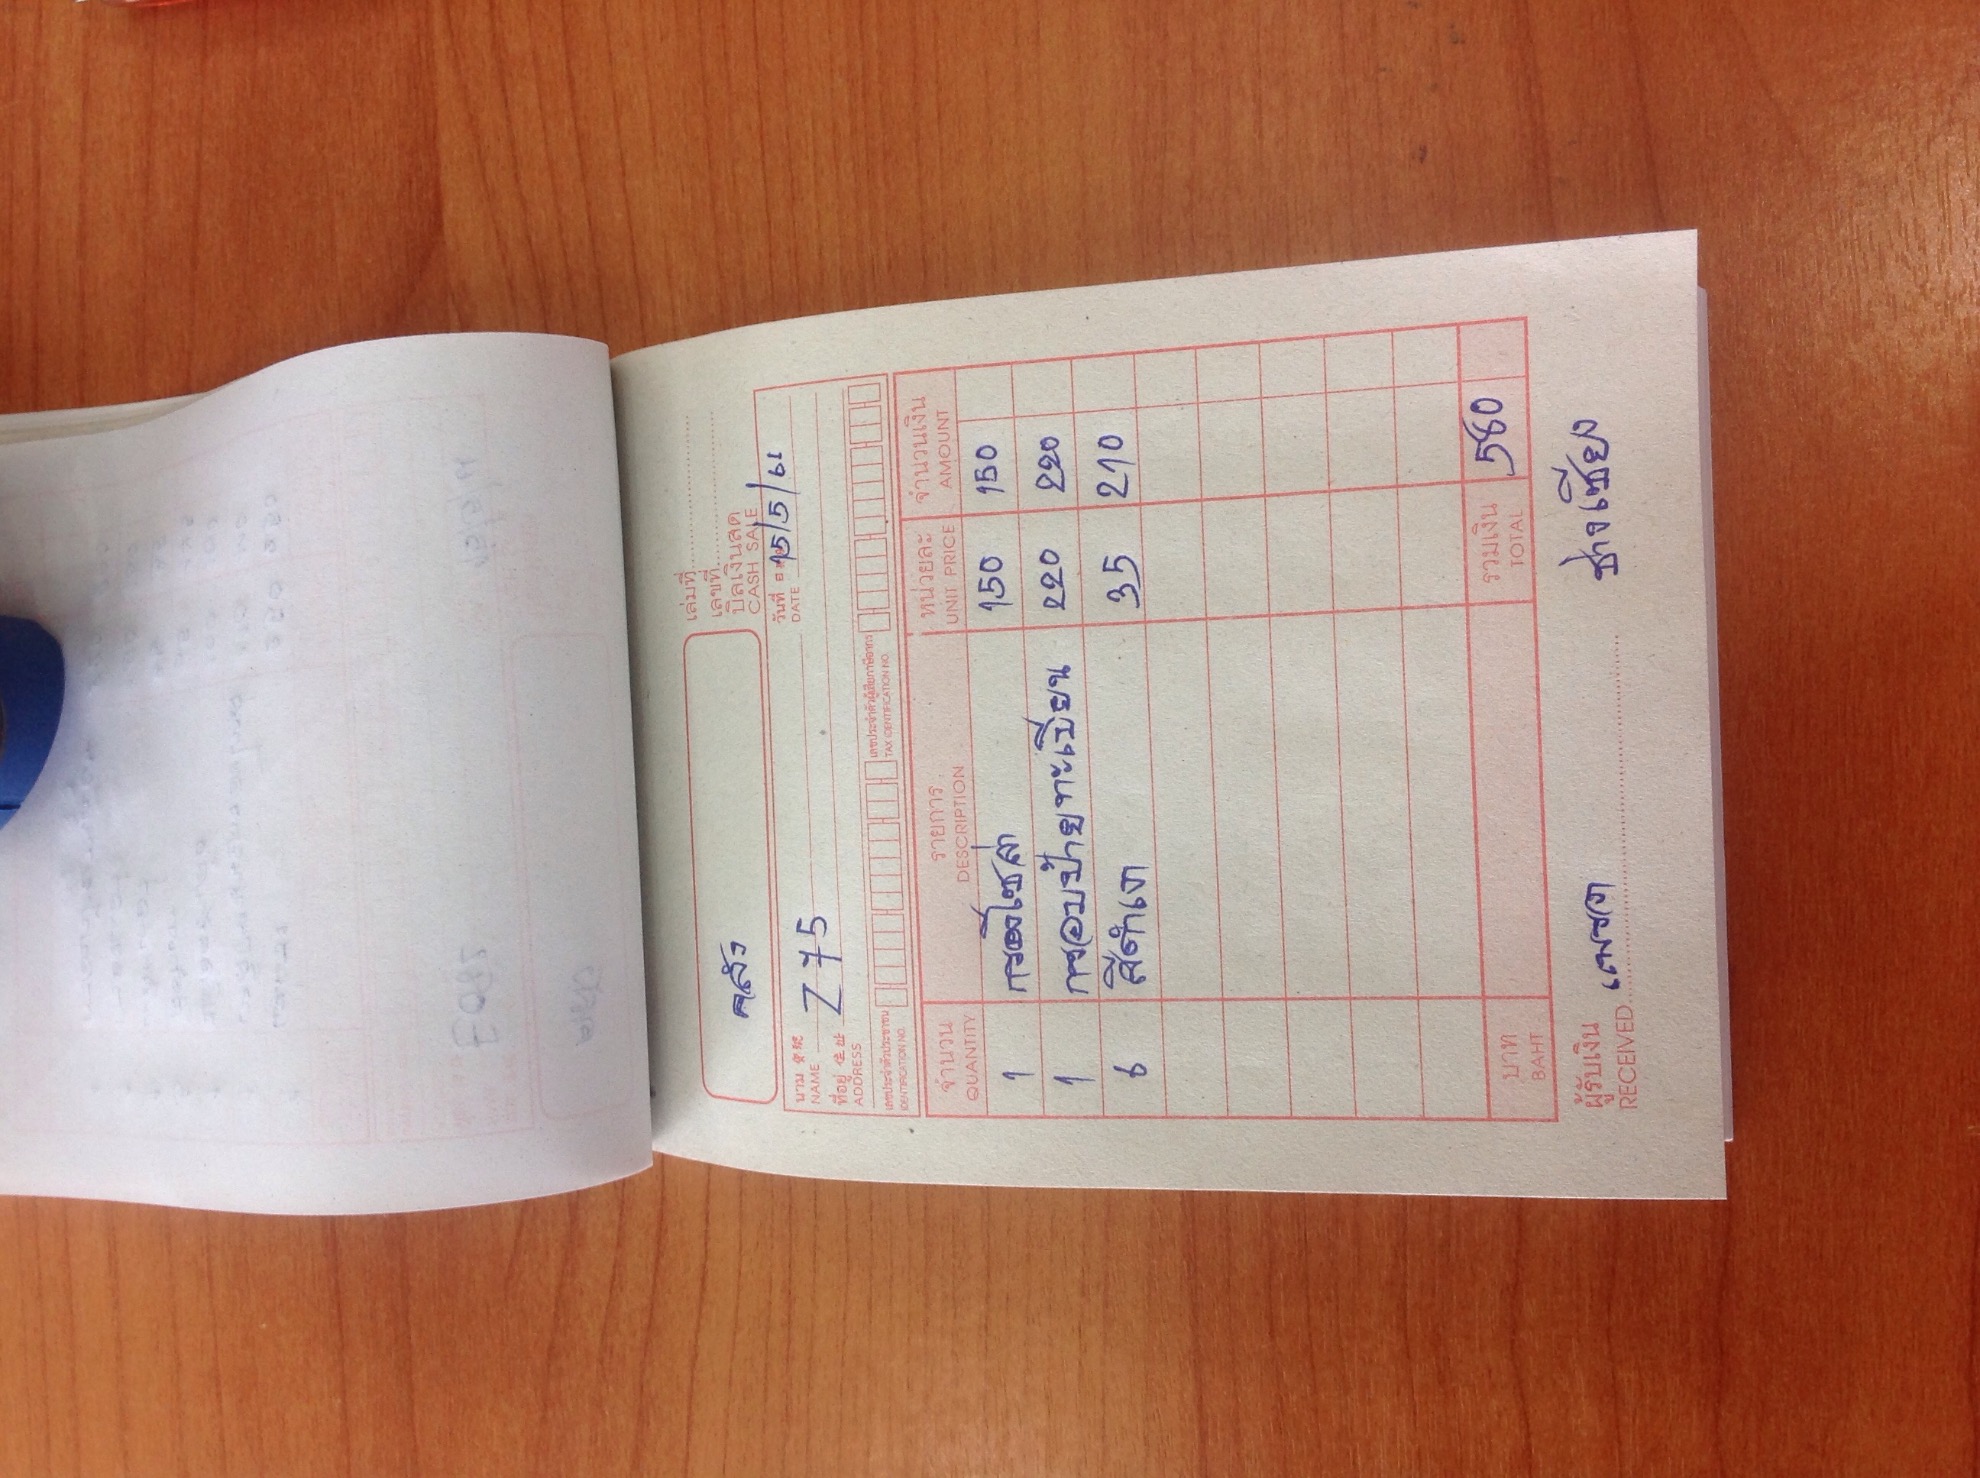 เล่มที่
เลขที่
บิลเงินสด
CASH SALE
คลัง
วันที่ 15/5/62
DATE
นาม Z 75
NAME
ที่อยู่ 住址
ADDRESS
เลขประจำตัวประชาชน เลขประจำตัวผู้เสียภาษีอากร
IDENTIFICATION NO. TAX IDENTIFICATION NO.
จำนวน รายการ หน่วยละ จำนวนเงิน
QUANTITY DESCRIPTION UNIT PRICE AMOUNT
1 กรองโซล่า 150 150
1 กรอบป้ายทะเบียน 220 220
6 สีดำเงา 35 210
บาท รวมเงิน 580
BAHT TOTAL
ผู้รับเงิน ช่างเชียง
RECEIVED